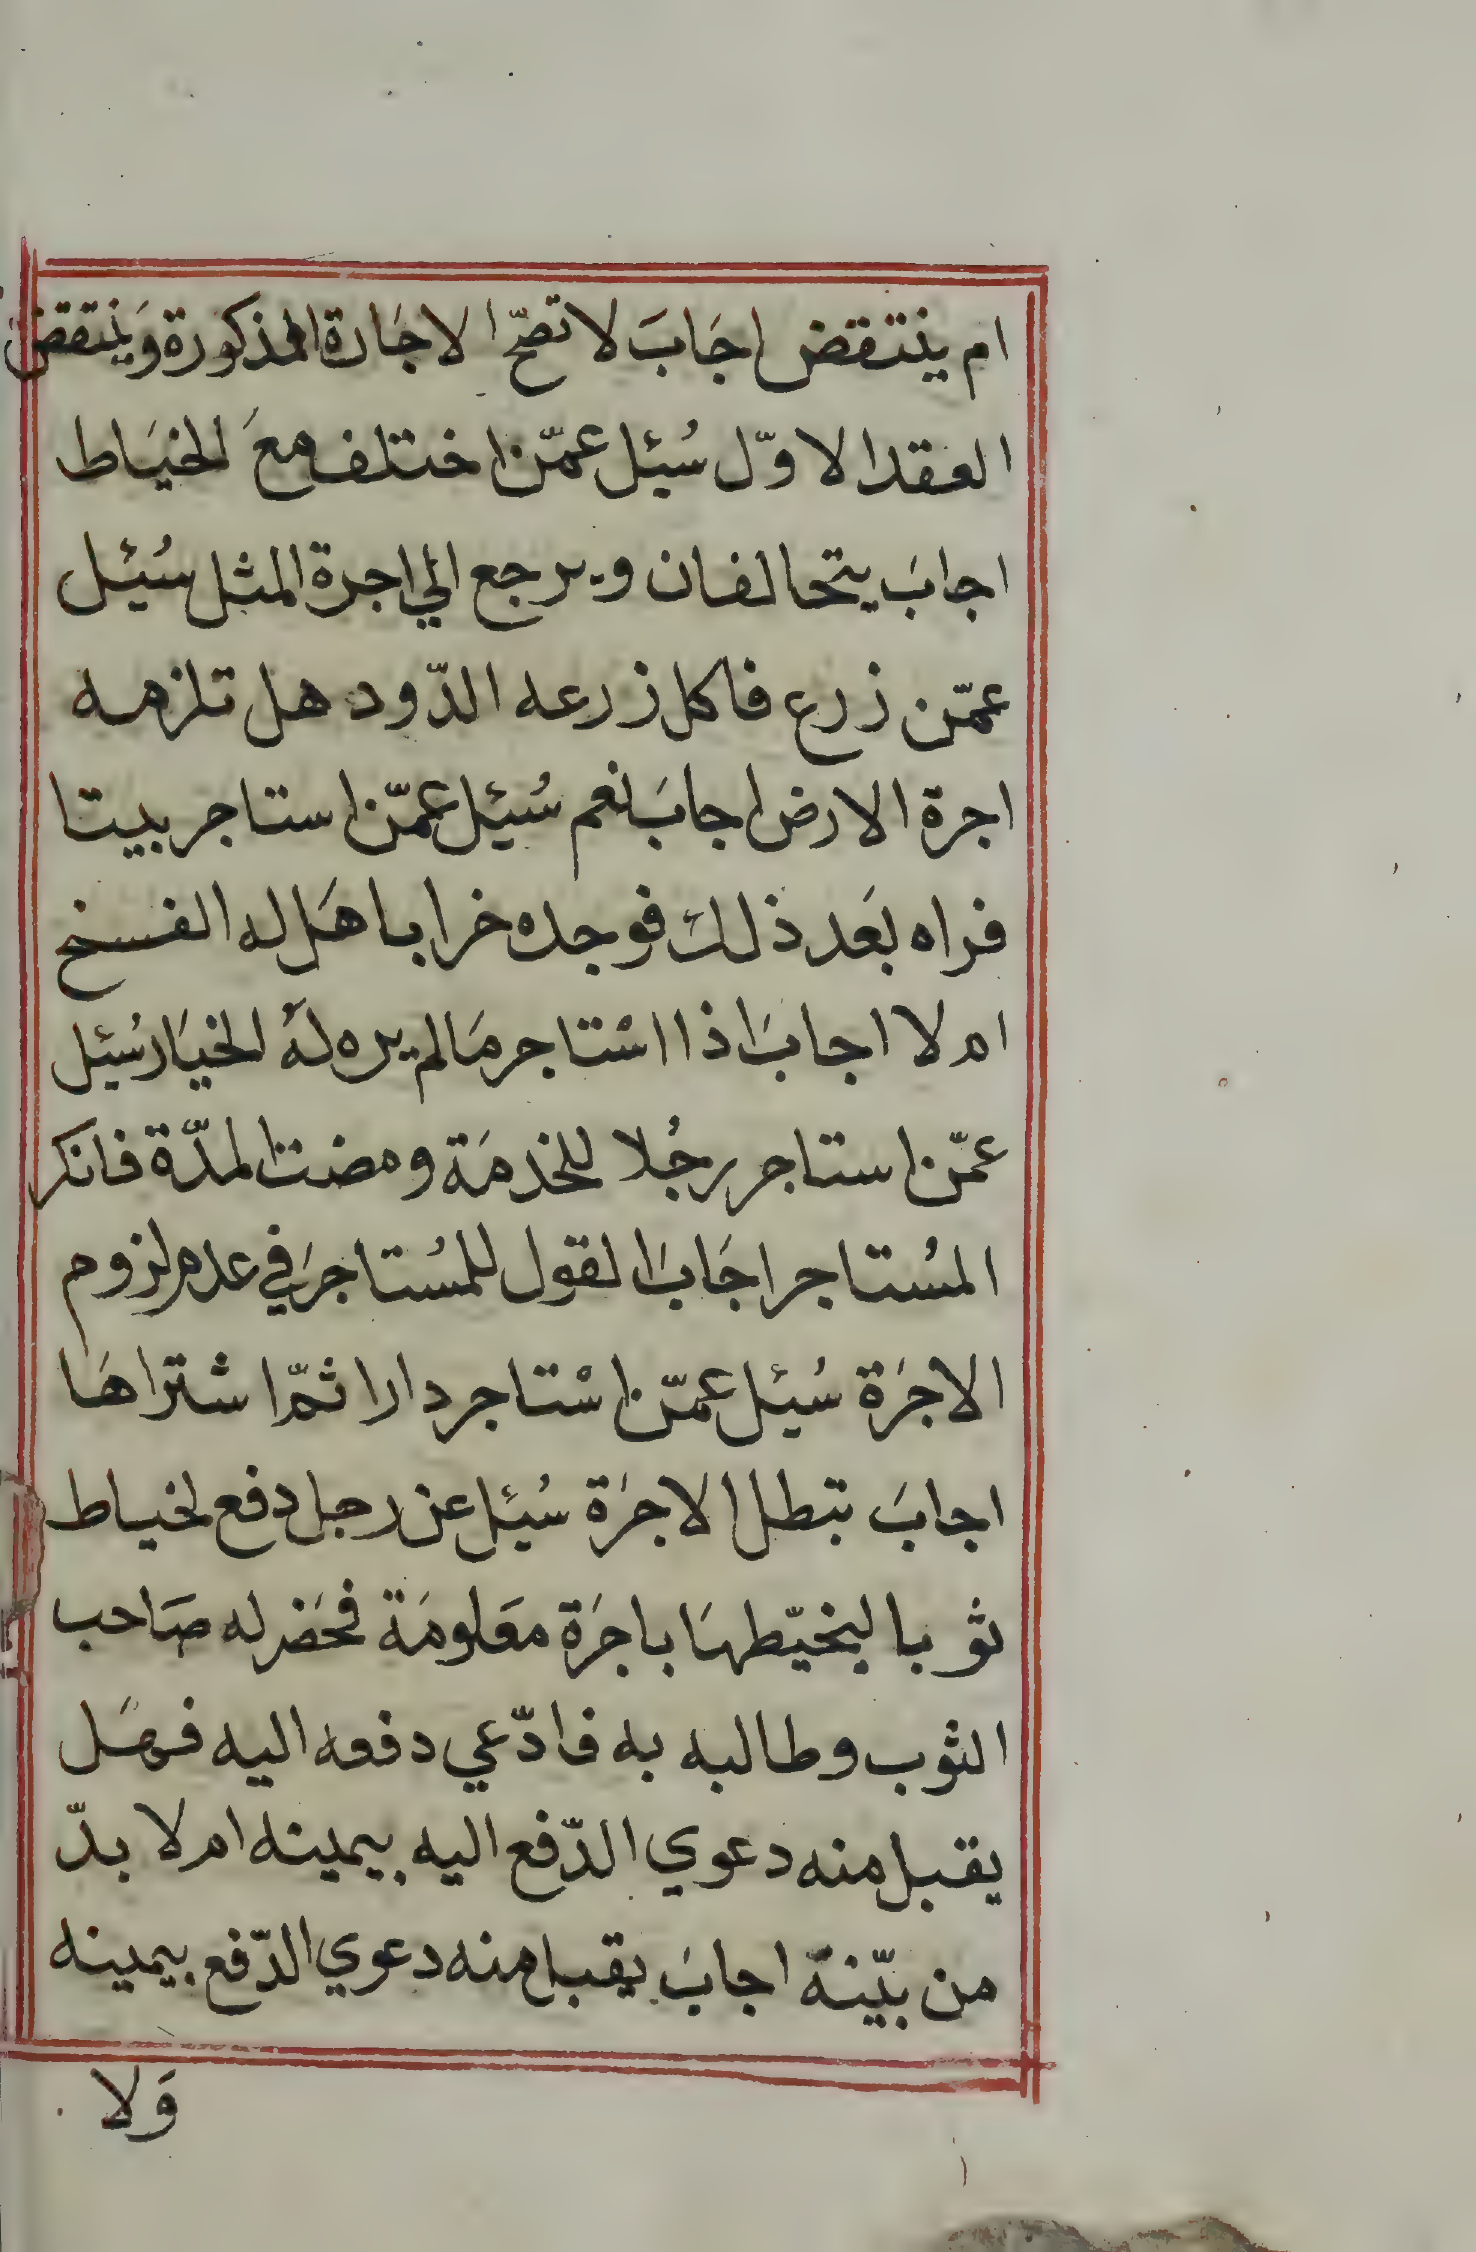 ام ينتقض اجَابَ لا تصحّ الاجَارة المذكورة وَينتقض
العقد الاوّل سُئِل عمّن اختلف معَ الخيَاط
اجابَ يتحالفان ويرجع الي اجرة المثل سُئِل
عمّن زرع فاكل زرعه الدّود هل تلزمه
اجرة الارض اجابَ نعم سُئِل عمّن استاجر بيتا
فراه بعَد ذلك فوجده خرابا هَل له الفسخ
ام لا اجابَ اذا اسْتاجر مَالم يره لهُ الخيَار سُئِل
عمّن استاجر رجُلا للخدمَة ومضت المدّة فانكر
المسُتاجر اجَابَ القول للمسُتاجرَ في عدم لزوم
الاجرَة سُئِل عمّن اسْتاجر دارا ثمّ اشتراهَا
اجابَ تبطل الاجرَة سُئِل عن رجل دفع لخياط
ثوبا ليخيّطهَا باجرَة معَلومَة فحَضر له صَاحب
الثوب وطالبه به فادّعي دفعه اليه فهَل
يقبل منه دعوي الدّفع اليه بيمينه ام لا بدّ
من بيّنة اجابَ يقبل منه دعوي الدّفع بيمينه
وَلا